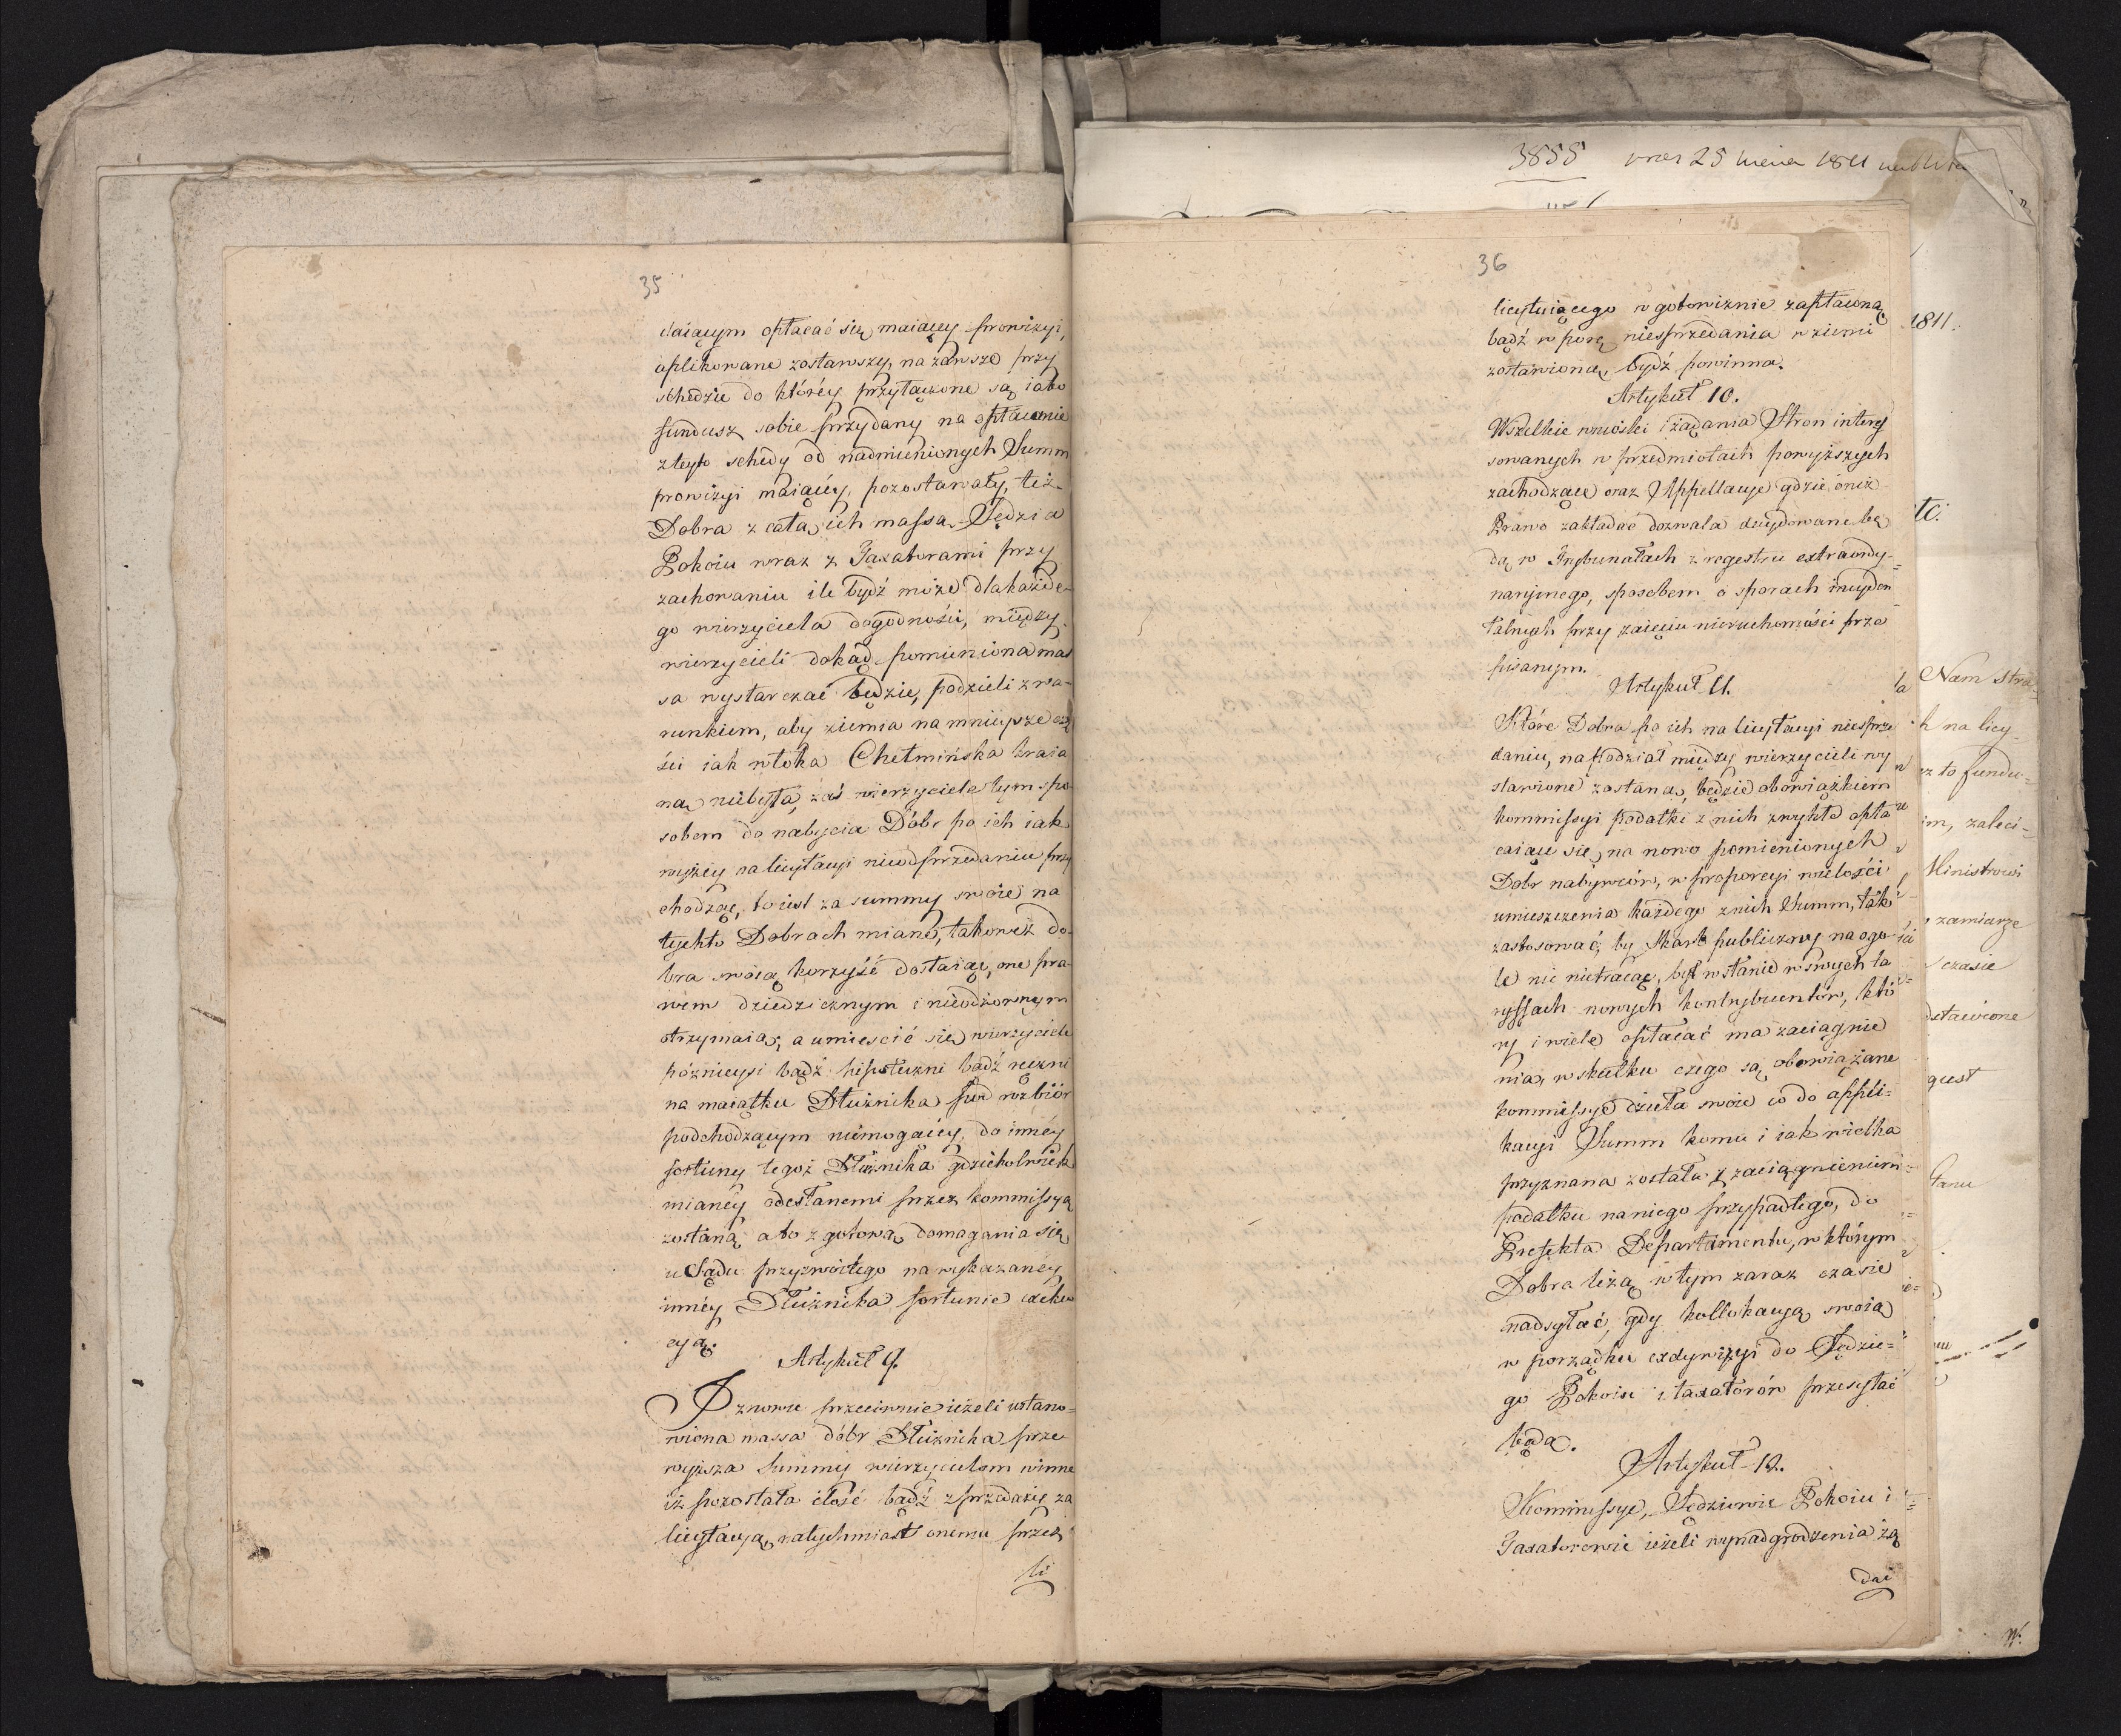 35
daiącym opłacać się maiącey prowizyi,
aplikowane zostawszy, na zawsze przy
schedzie do któréy przyłączone są iako
fundusz sobie przydany na opłacenie
zteyto schedy od nadmienionych Summ
prowizyi maiącéy, pozostawały, też
Dobra z całą ich massą Sędzia
Pokoiu wraz z Taxatorami przy
zachowaniu ile bydź może dla każde-
go wierzyciela dogodności, między
wierzycieli dokąd pomieniona mas
sa wystarczać będzie, podzieli z wa-
runkiem, aby ziemia na mnieysze czę
ści iak włóka Chełmińska kraia
ną niebyła, zaś wierzyciele tym spo
sobem do nabycia Dóbr po ich iak
wyżéy na licytacyi nieodsprzedaniu przy
chodząc, to iest za summy swoie na
tychto Dobrach miane, takoweż do-
bra swoią korzyść dostaiąc, one pra-
wem dziedzicznym i nieodzownym
otrzymaią; a umieścić się wierzyciele
późnieysi bądź hipoteczni bądź ręczni
na maiątku Dłużnika pod rozbiór
podchodzącym niemogący, do innéy
fortuny tegoż Dłużnika gdziekolwiek
mianéy odesłanemi przez kommissyą
zostaną a to z gotową domagania się
u Sądu przyzwoitego na wykazanéy
innéy Dłużnika fortunie exeku
cyą.
Artykuł 9.
Znowu przeciwnie ieżeli ustano=
wiona massa dóbr Dłużnika prze
wyższa Summy wierzycielom winne
iż pozostała ilość bądź z przedaży za
licytacyą, natychmiast onemu przez
li
3855
25 1811
36
licytuiącego w gotowiznie zapłaconą
bądź w porę niesprzedania w ziemi
zostawioną bydź powinna.
Artykuł 10.
Wszelkie wnioski i żądania Stron interes
sowanych w przedmiotach powyższych
zachodzące oraz Appellacye gdzie onéż
Prawo zakładać dozwala decydowane bę
dą w Trybunałach z regestru extraordy-
naryinego, sposobem o sporach incyden
talnych przy zaięciu nieruchomości prze
pisanym.
Artykuł 11.
Które Dobra po ich na licytacyi niesprze
daniu, na podział między wierzycieli wy
stawione zostaną, będzie obowiązkiem
kommissyi podatki z nich zwykłe opła
caiące się, na nowo pomienionych
Dobr nabywców, w proporcyi wielości
umieszczenia każdego z nich Summ, tak
zastosować, by Skarb publiczny na ogo-
le nic nietracąc, był w stanie w swych ta
ryffach nowych kontrybuentów, któ
ry i wiele opłacać ma zaciągnie
nia, w skutku czego są obowiązane
kommissye dzieła swoie co do appli=
kacyi Summ komu i iak wielka
przyznana została z zaciągnieniem
podatku na niego przypadłego, do
Prefekta Departamentu, w którym
Dobra leżą w tym zaraz czasie
nadsyłać, gdy kollokacyą swoią
w porządku exdywizyi do Sędzie=
go Pokoiu i taxatorów przesyłać
będą.
Artykuł 12.
Kommissye, Sędziowie Pokoiu i
Taxatorowie ieżeli wynadgrodzenia żą
dai
1811.
etc.
Nam
h na licy-
ez to fundu-
im, zaleci-
Ministrowi
zamiarze
czasie
dstawione
gust